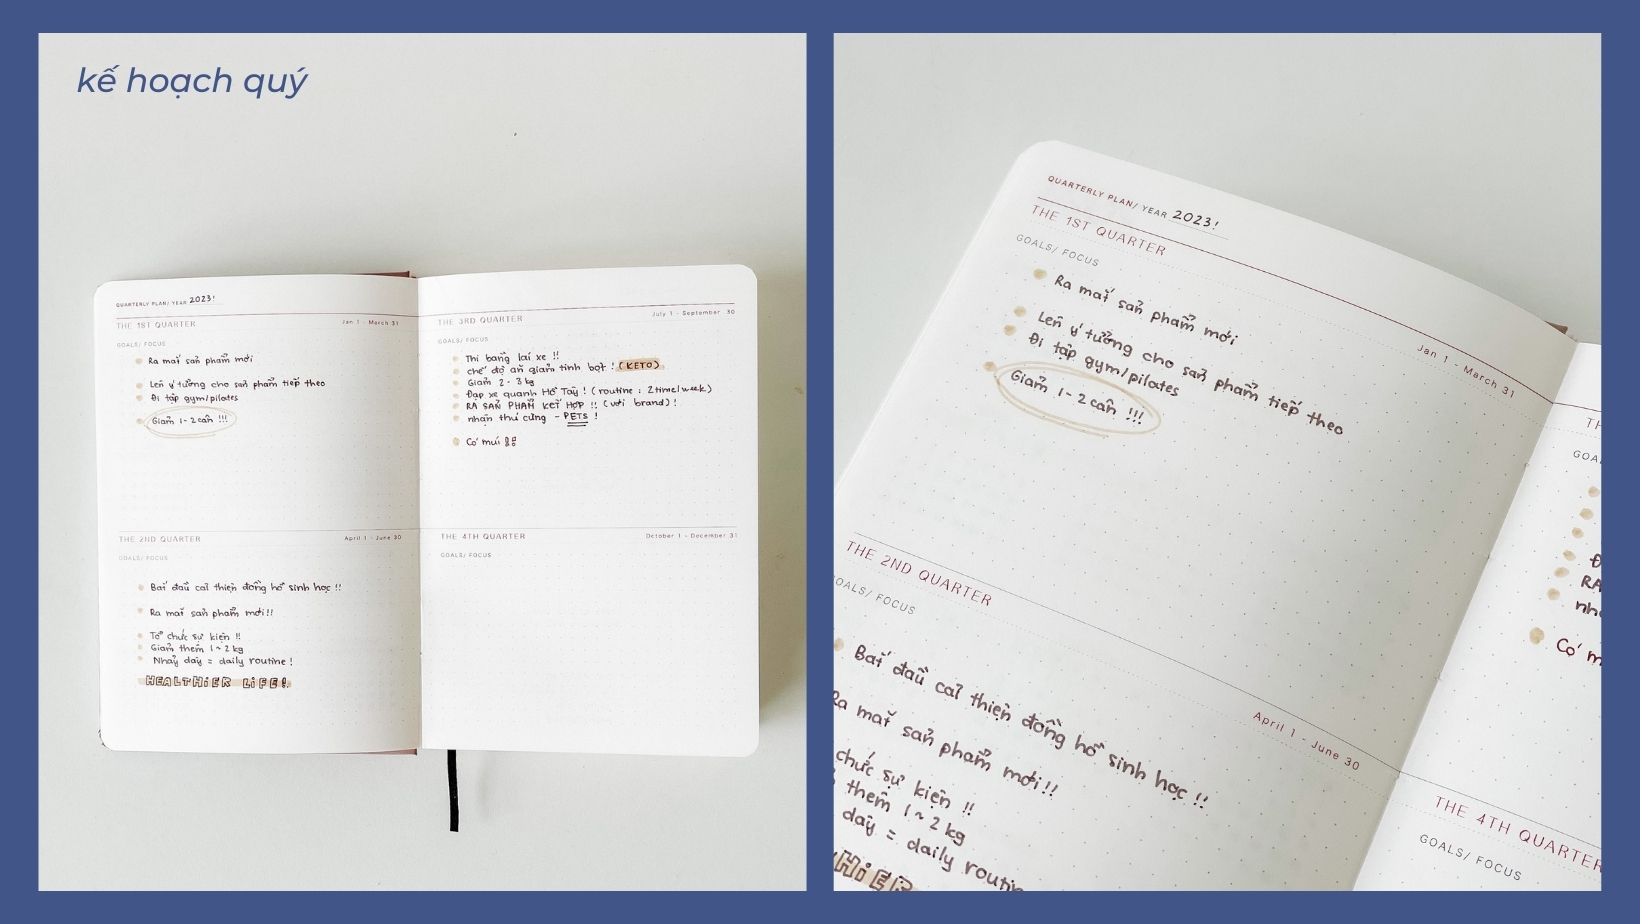 kế hoạch quý
QUARTERLY PLAN/ YEAR 2023!
THE 1ST QUARTER Jan 1 - March 31
GOALS/ FOCUS
Ra mắt sản phẩm mới
Lên ý tưởng cho sản phẩm tiếp theo
Đi tập gym/pilates
Giảm 1-2 cân !!!
THE 2ND QUARTER April 1 - June 30
GOALS/ FOCUS
Bắt đầu cải thiện đồng hồ sinh học !!
Ra mắt sản phẩm mới!!
Tổ chức sự kiện !!
Giảm thêm 1~2 kg
Nhảy dây = daily routine!
HEALTHiER LiFE!
THE 3RD QUARTER July 1 - September 30
GOALS/ FOCUS
Thi bằng lái xe !!
chế độ ăn giảm tinh bột ! (KETO)
Giảm 2-3 kg
Đạp xe quanh Hồ Tây! (routine : 2time/week)
RA SẢN PHẨM KẾT HỢP !! (với brand)!
nhận thú cưng - PETS !
Có múi
THE 4TH QUARTER October 1 - December 31
GOALS/ FOCUS
QUARTERLY PLAN/ YEAR 2023!
THE 1ST QUARTER
GOALS/ FOCUS
Jan 1 - March 31
Ra mắt sản phẩm mới
Lên ý tưởng cho sản phẩm tiếp theo
Đi tập gym/pilates
Giảm 1-2 cân !!!
THE 2ND QUARTER
GOALS/ FOCUS
April 1 - June 30
Bắt đầu cải thiện đồng hồ sinh học !!
Ra mắt sản phẩm mới!!
chức sự kiện !!
thêm 1~2 kg
dây = daily routin
HiER
TH
GOA
Đ
RA
nh
Có m
THE 4TH QUARTER
GOALS/ FOCUS